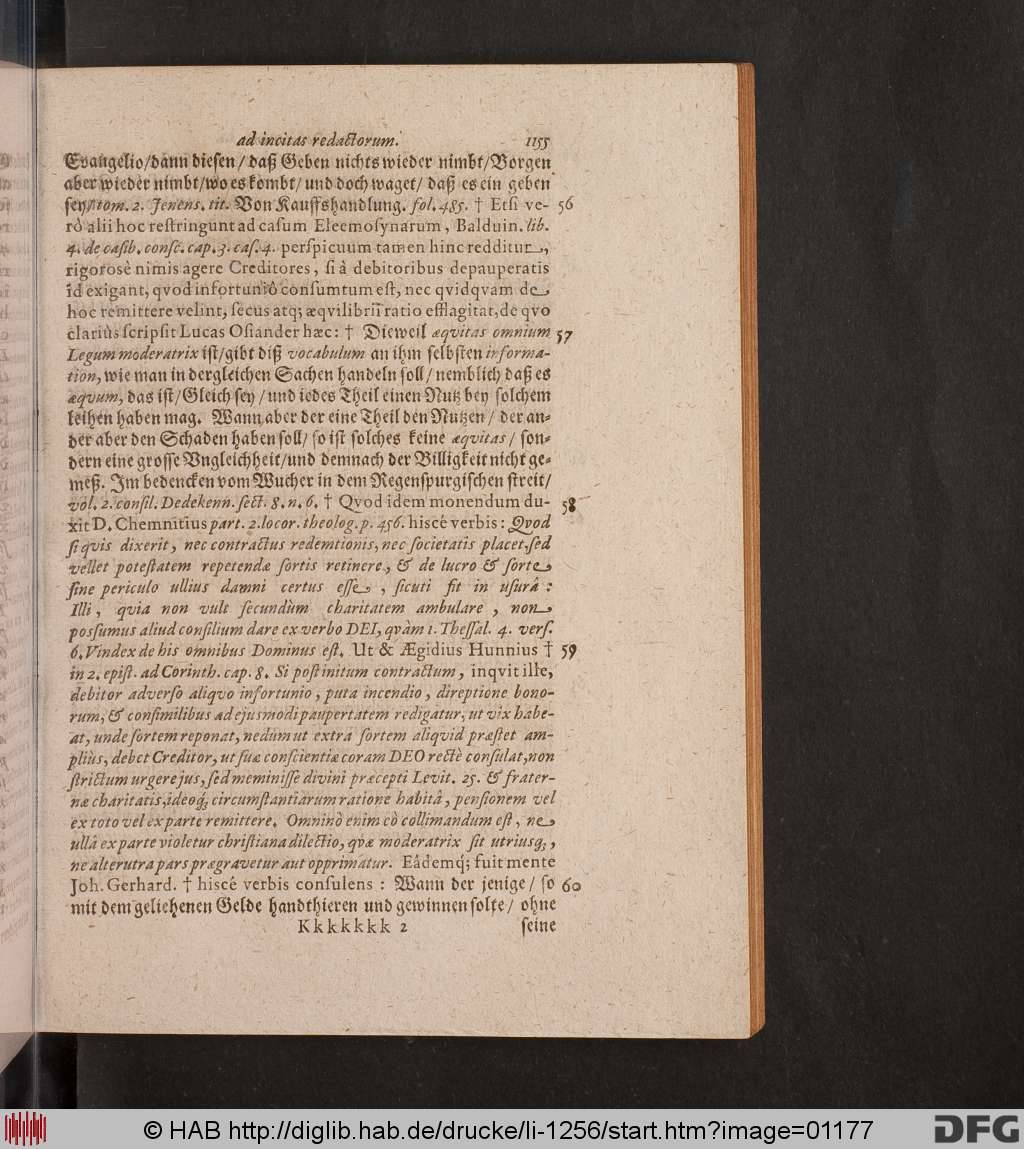 ad incitas redactorum. 1155
Evangelio/dann diesen/ daß Geben nichts wieder nimbt/Borgen
aber wieder nimbt/wo es kombt/ und doch waget/ daß es ein geben
sey/tom. 2. Jenens. tit. Von Kauffshandlung. fol. 485. † Etſi ve- 56
rò alii hoc reſtringunt ad caſum Eleemoſynarum, Balduin. lib.
4. de caſib. conſc. cap. 3. caſ. 4. perſpicuum tamen hinc redditur,
rigoroſè nimis agere Creditores, ſi à debitoribus depauperatis
id exigant, qvod infortuniô conſumtum eſt, nec qvidqvam de
hoc remittere velint, ſecus atq; æqvilibrii ratio efflagitat, de qvo
clariùs ſcripſit Lucas Oſiander hæc: † Dieweil æqvitas omnium 57
Legum moderatrix iſt/gibt diß vocabulum an ihm ſelbſten informa-
tion, wie man in dergleichen Sachen handeln ſoll/ nemblich daß es
æqvum, das iſt/Gleich ſey/und iedes Theil einen Nutz bey ſolchem
leihen haben mag. Wann aber der eine Theil den Nutzen/ der an-
der aber den Schaden haben ſoll/ ſo iſt ſolches keine æqvitas/ ſon-
dern eine groſſe Vngleichheit/und demnach der Billigkeit nicht ge-
meß. Im bedencken vom Wucher in dem Regenſpurgiſchen ſtreit/
vol. 2. conſil. Dedekenn. ſect. 8. n. 6. † Qvod idem monendum du- 58
xit D. Chemnitius part. 2. locor. theolog. p. 456. hiscé verbis: Qvod
ſi qvis dixerit, nec contractus redemtionis, nec ſocietatis placet, ſed
vellet poteſtatem repetendæ ſortis retinere, & de lucro & ſorte
ſine periculo ullius damni certus eſſe, ſicuti fit in uſurâ:
Illi, quia non vult ſecundùm charitatem ambulare, non
poſſumus aliud conſilium dare ex verbo DEI, qvàm 1. Theſſal. 4. verſ.
6. Vindex de his omnibus Dominus eſt. Ut & Ægidius Hunnius † 59
in 2. epiſt. ad Corinth. cap. 8. Si poſt initum contractum, inqvit ille,
debitor adverſo aliqvo infortunio, puta incendio, direptione bono-
rum, & conſimilibus ad ejusmodi paupertatem redigatur, ut vix habe-
at, unde ſortem reponat, nedum ut extra ſortem aliqvid præſtet am-
pliùs, debet Creditor, ut ſuæ conſcientiæ coram DEO rectè conſulat, non
ſtrictum urgere jus, ſed meminiſſe divini præcepti Levit. 25. & frater-
næ charitatis, ideoq; circumſtantiarum ratione habitâ, penſionem vel
ex toto vel ex parte remittere. Omninò enim eò collimandum eſt, ne
ullâ ex parte violetur chriſtiana dilectio, qvæ moderatrix ſit utriusq;,
ne alterutra pars prægravetur aut opprimatur. Eâdemq; fuit mente
Joh. Gerhard. † hiscé verbis conſulens: Wann der jenige/ ſo 60
mit dem geliehenen Gelde handthieren und gewinnen ſolte/ ohne
Kkkkkkk 2 ſeine
© HAB http://diglib.hab.de/drucke/li-1256/start.htm?image=01177
DFG